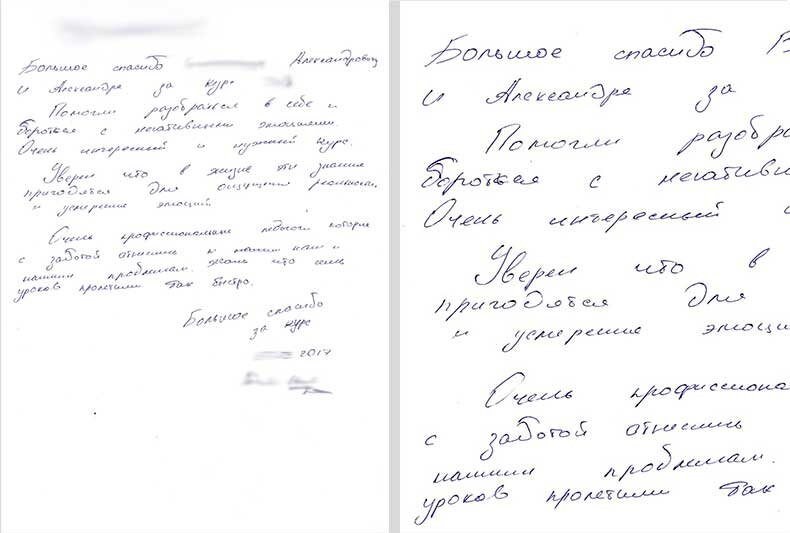 Большое спасибо Александровичу
и Александре за курс
Помогли разобраться в себе и
бороться с негативными эмоциями.
Очень интересный и нужный курс.
Уверен что в жизне эти знания
пригодятся для ощущения реальности
и усмерение эмоций
Очень профессиональные педагоги которые
с заботой отнеслись к нам и
нашим проблемам. Жаль что семь
уроков пролетили так быстро.
Большое спасибо
за курс
2017
Большое спасибо В
и Александре за
Помогли разобра
бороться с негативны
Очень интересный
Уверен что в
пригодятся для
и усмерение эмоци
Очень профессиона
с заботой отнеслись
нашим проблемам.
уроков пролетили так